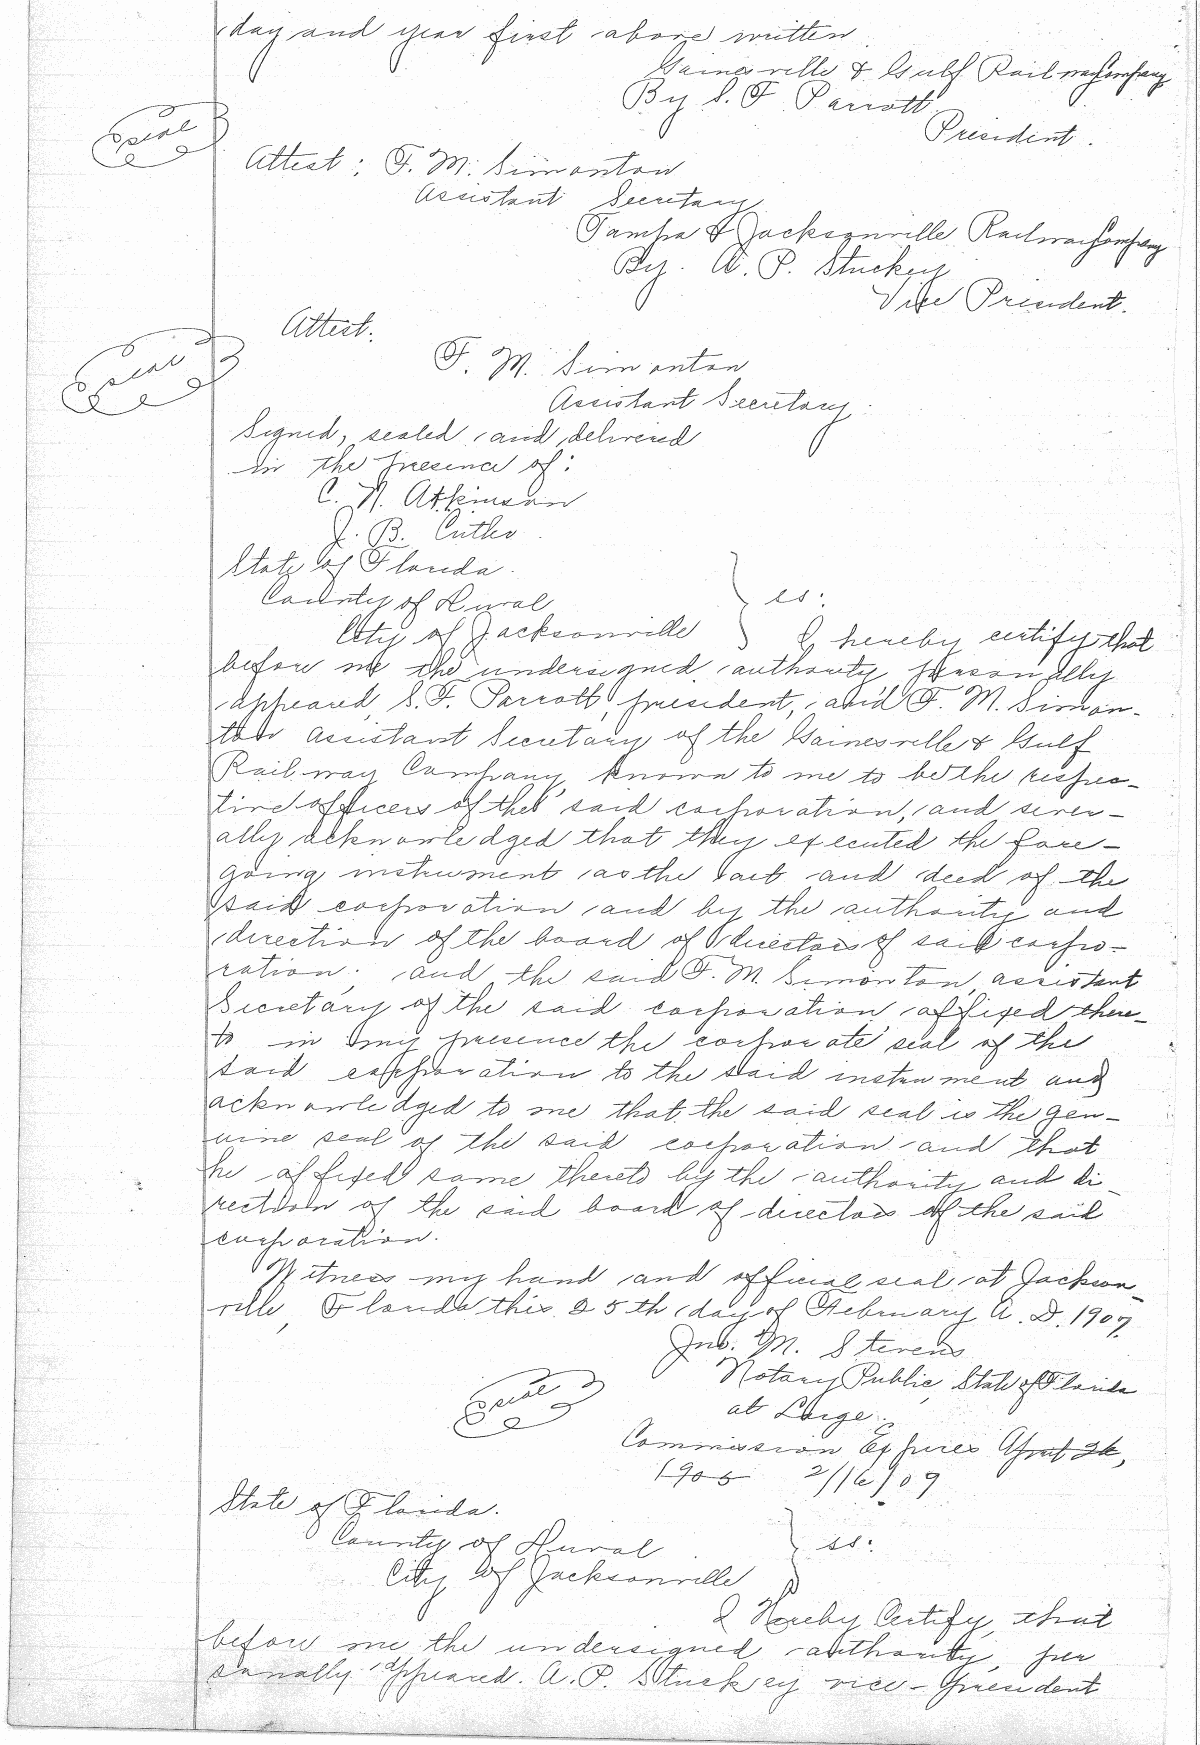 day and year first above written
Gainesville & Gulf Railway Company
By S. F. Parrott
President.
Seal
Attest: F. M. Simonton
Assistant Secretary
Tampa & Jacksonville Railway Company
By. A. P. Stuckey
Vice President.
Attest.
Seal
F. M. Simonton
Assistant Secretary.
Signed, sealed and delivered
in the presence of:
C. N. Atkinson
J. B. Cutler
State of Florida.
County of Duval
ss:
City of Jacksonville I hereby certify that
before me the undersigned authority personally
appeared S. F. Parrott, president, and F. M. Simon-
ton Assistant Secretary of the Gainesville & Gulf
Railway Company, known to me to be the respec-
tive officers of the said corporation, and sever-
ally acknowledged that they executed the fore-
going instrument as the act and deed of the
said corporation and by the authority and
direction of the board of directors of said corpo-
ration; and the said F. M. Simonton, assistant
Secretary of the said corporation affixed there-
to in my presence the corporate seal of the
said corporation to the said instrument and
acknowledged to me that the said seal is the gen-
uine seal of the said corporation and that
he affixed same thereto by the authority and di-
rection of the said board of directors of the said
corporation.
Witness my hand and official seal at Jackson-
ville, Florida this 25th day of February A. D. 1907.
Jno. M. Stevens
Notary Public, State of Florida
Seal
at Large.
Commission Expires April 26,
1905 2/16/09
State of Florida.
County of Duval
ss:
City of Jacksonville
I Hereby Certify, that
before me the undersigned authority, per
sonally appeared. A. P. Stuckey vice-president